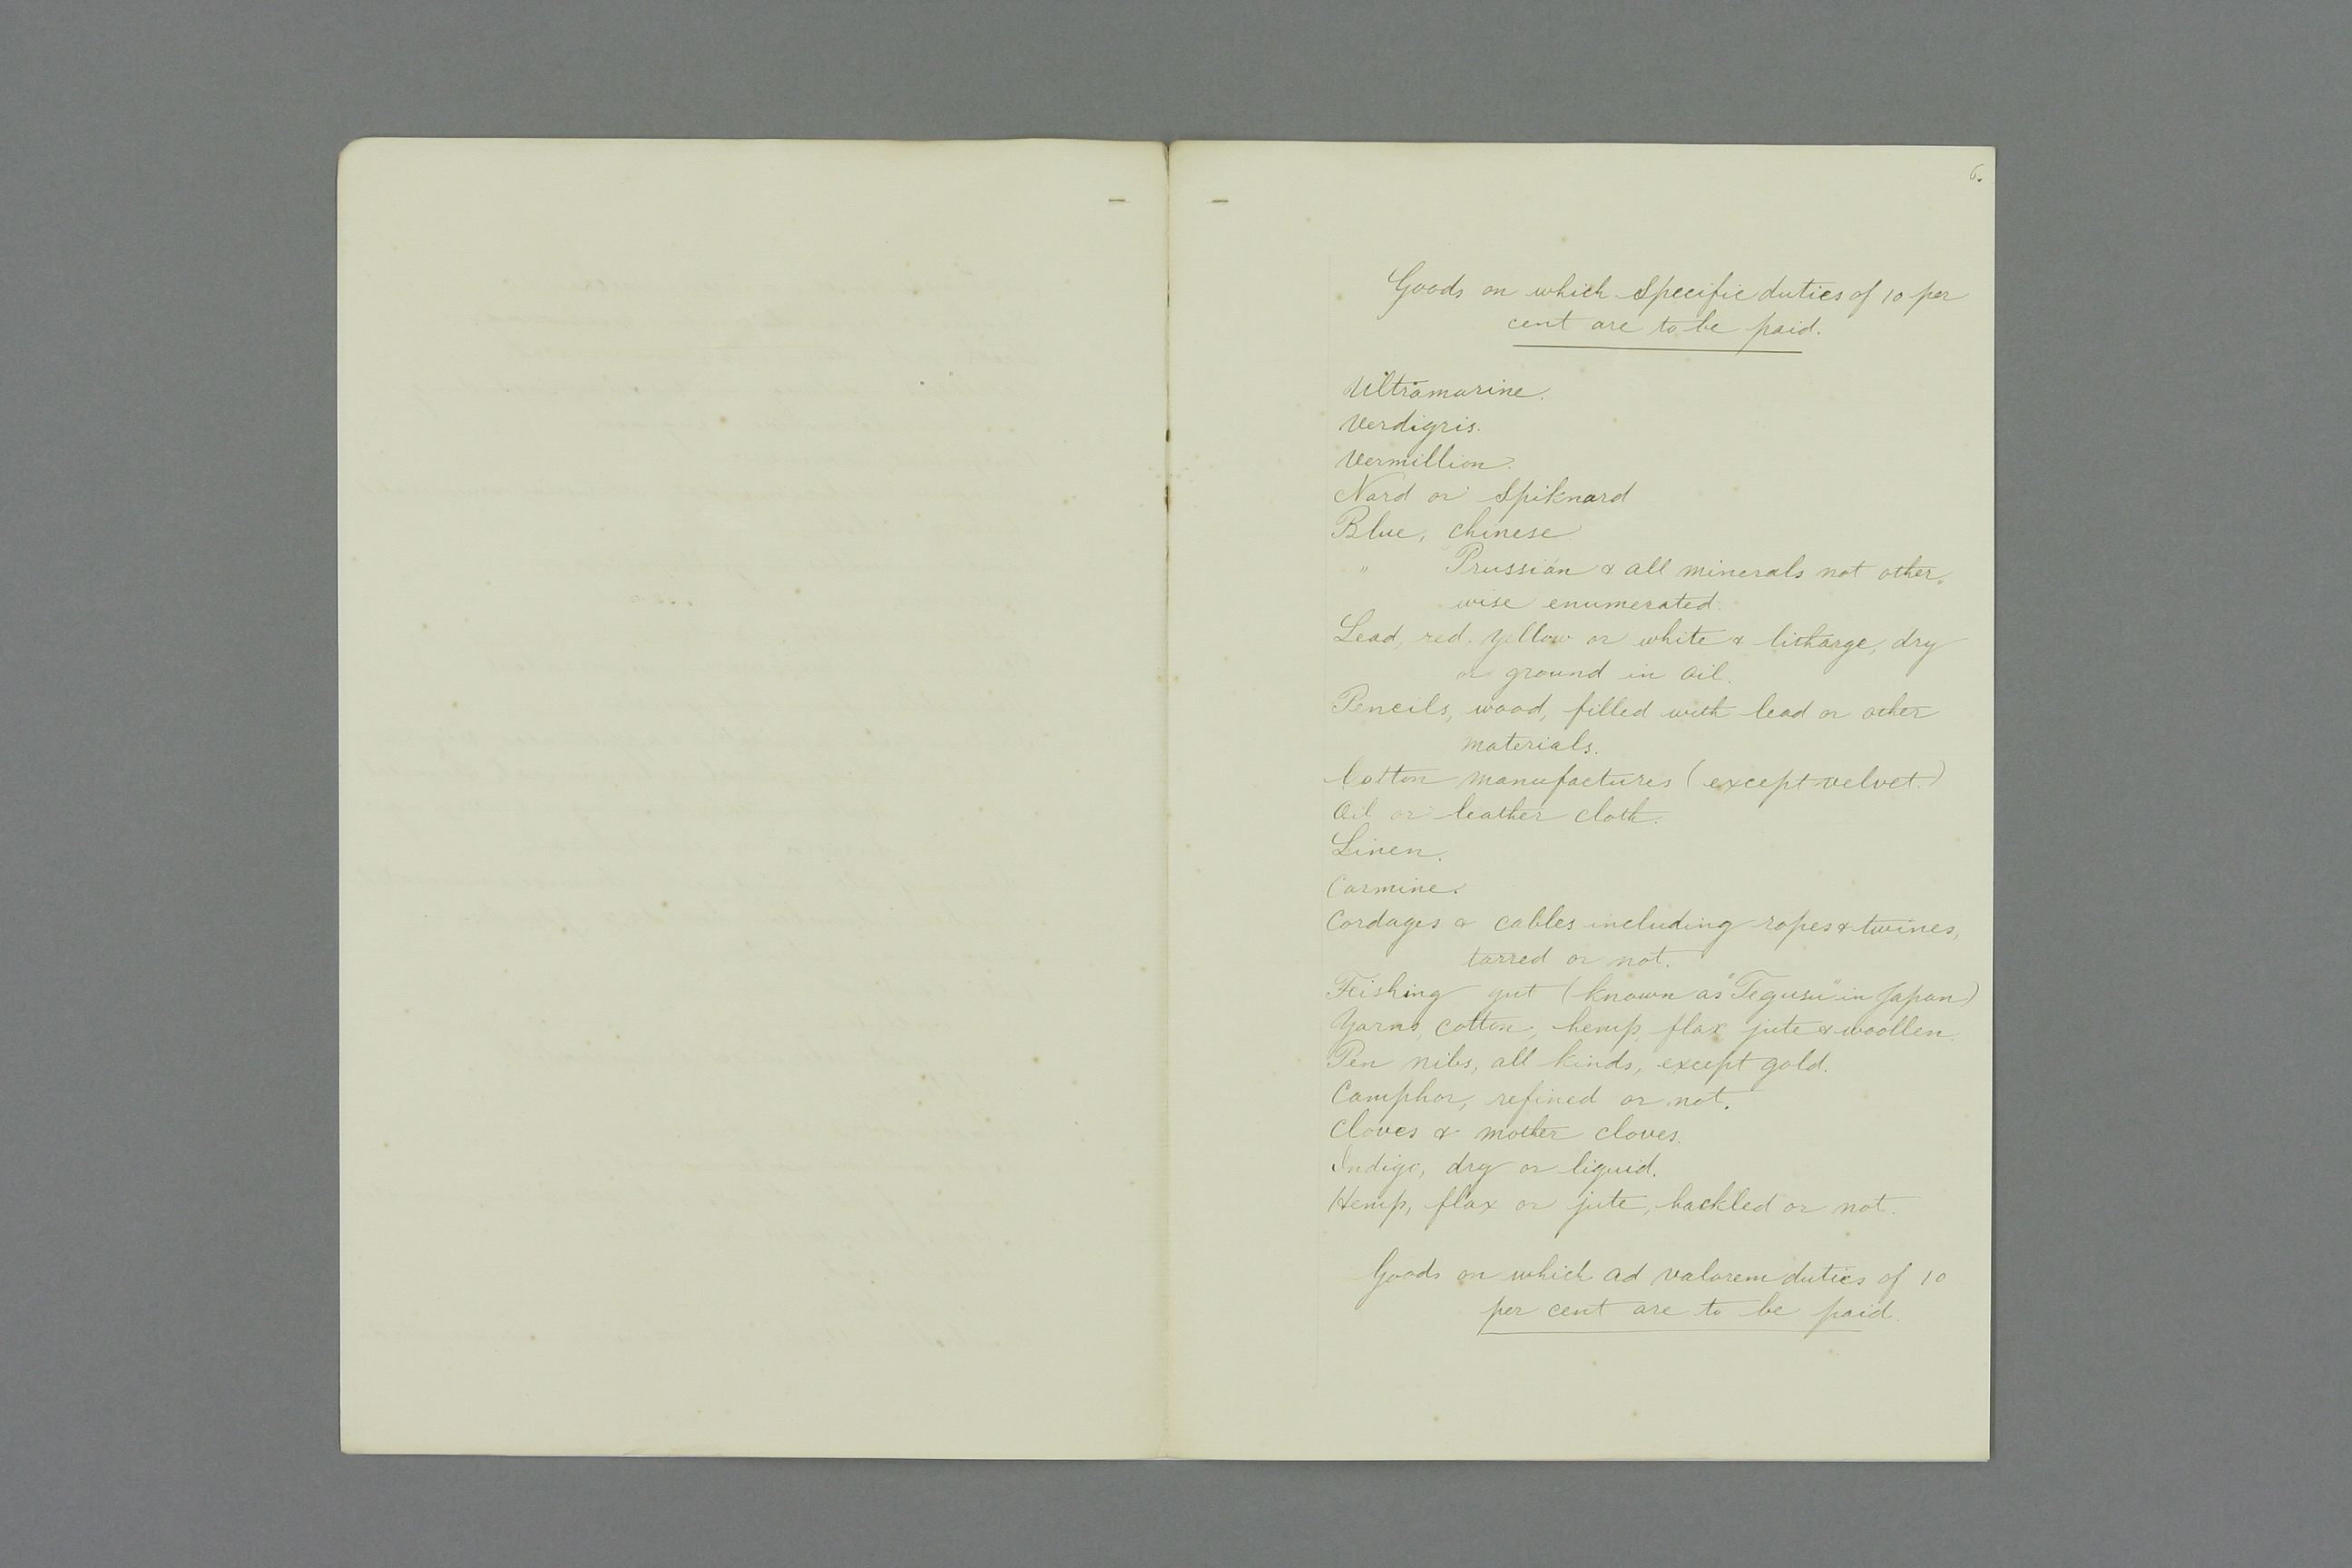 6.
Goods on which Specific duties of 10 per
cent are to be paid.
Ultramarine.
Verdigris.
Vermillion.
Nard or Spiknard
Blue, chinese
" Prussian & all minerals not other-
wise enumerated.
Lead, red. yellow or white & litharge, dry
or ground in oil.
Pencils, wood, filled with lead or other
materials.
Cotton manufactures (except velvet.)
Oil or leather cloth.
Linen.
Carmine.
Cordages & cables including ropes & twines,
tarred or not.
Feishing gut (known as "Tegusu" in Japan)
Yarns, cotton, hemp, flax jute & woollen.
Pen nibs, all kinds, except gold.
Camphor, refined or not.
Cloves & mother cloves.
Indigo, dry or liquid.
Hemp, flax or jute, hackled or not.
Goods on which ad valorem duties of 10
per cent are to be paid.